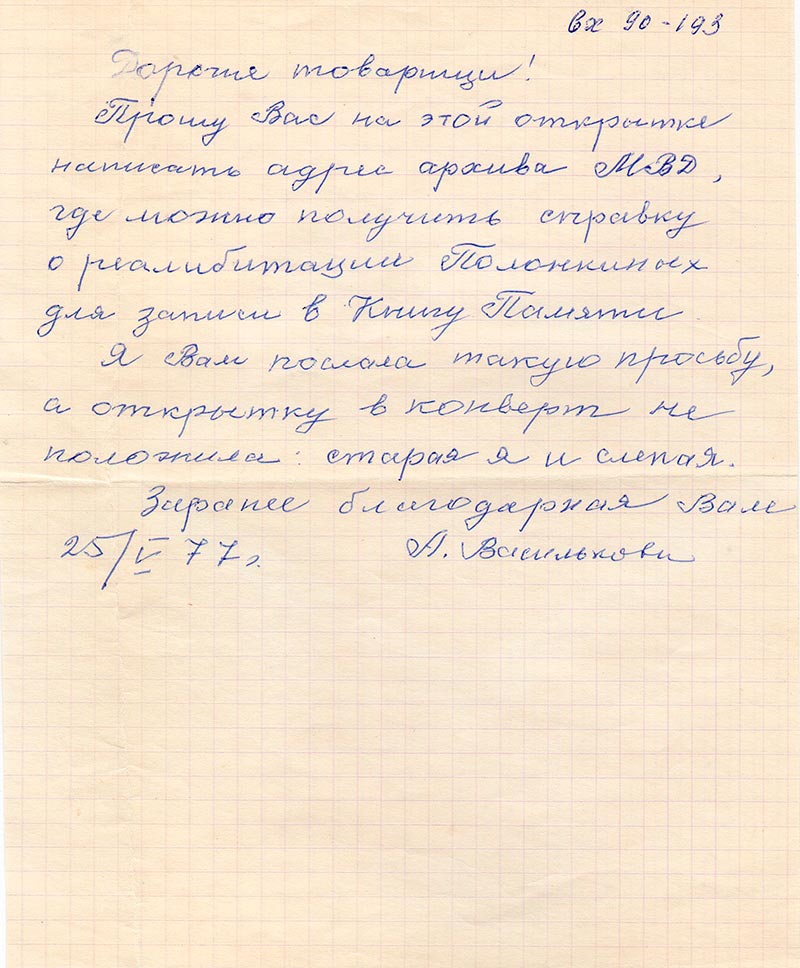 вх 90-193
Дорогие товарищи!
Прошу Вас на этой открытке
написать адрес архива МВД,
где можно получить справку
о реалибитации Полонкиных
для записи в Книгу Памяти.
Я Вам послала такую просьбу,
а открытку в конверт не
положила: старая я и слепая.
Заранее благодарная Вам
25/V 77г. А.